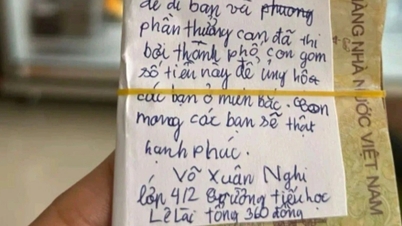 để đi bạn và phuong
phần thưởng can đã thi
bơi thành phố. con gom
số tiền này để ủng hộ
các bạn ở miền bắc. Con
mong các bạn sẽ thật
hạnh phúc.
Võ Xuân Nghi
lớp 4/2 trường tiểu học
Lê Lai tổng 360 đồng
HÀNG NHÀ NƯỚC VIỆT NAM